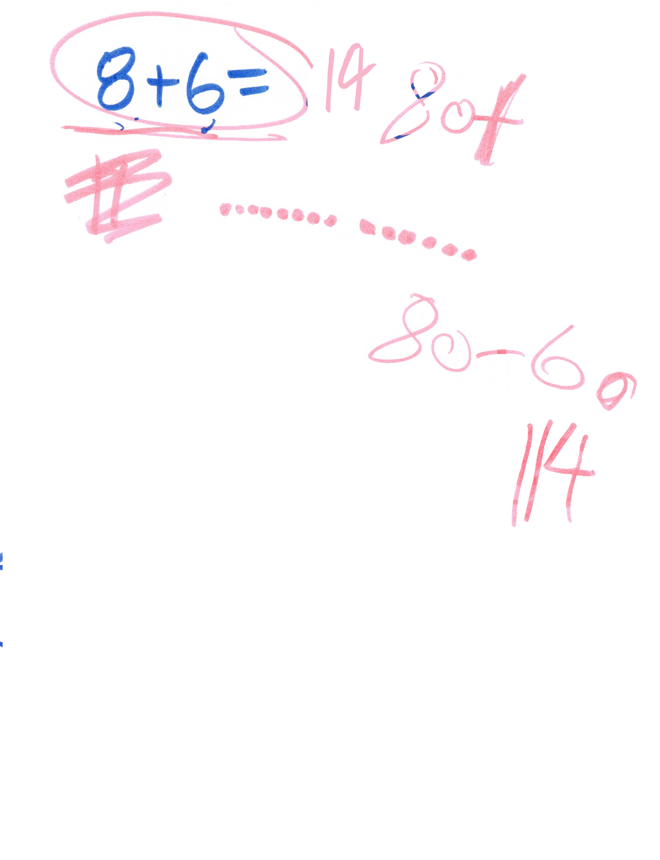 8+6= 14 80+
80-60
114